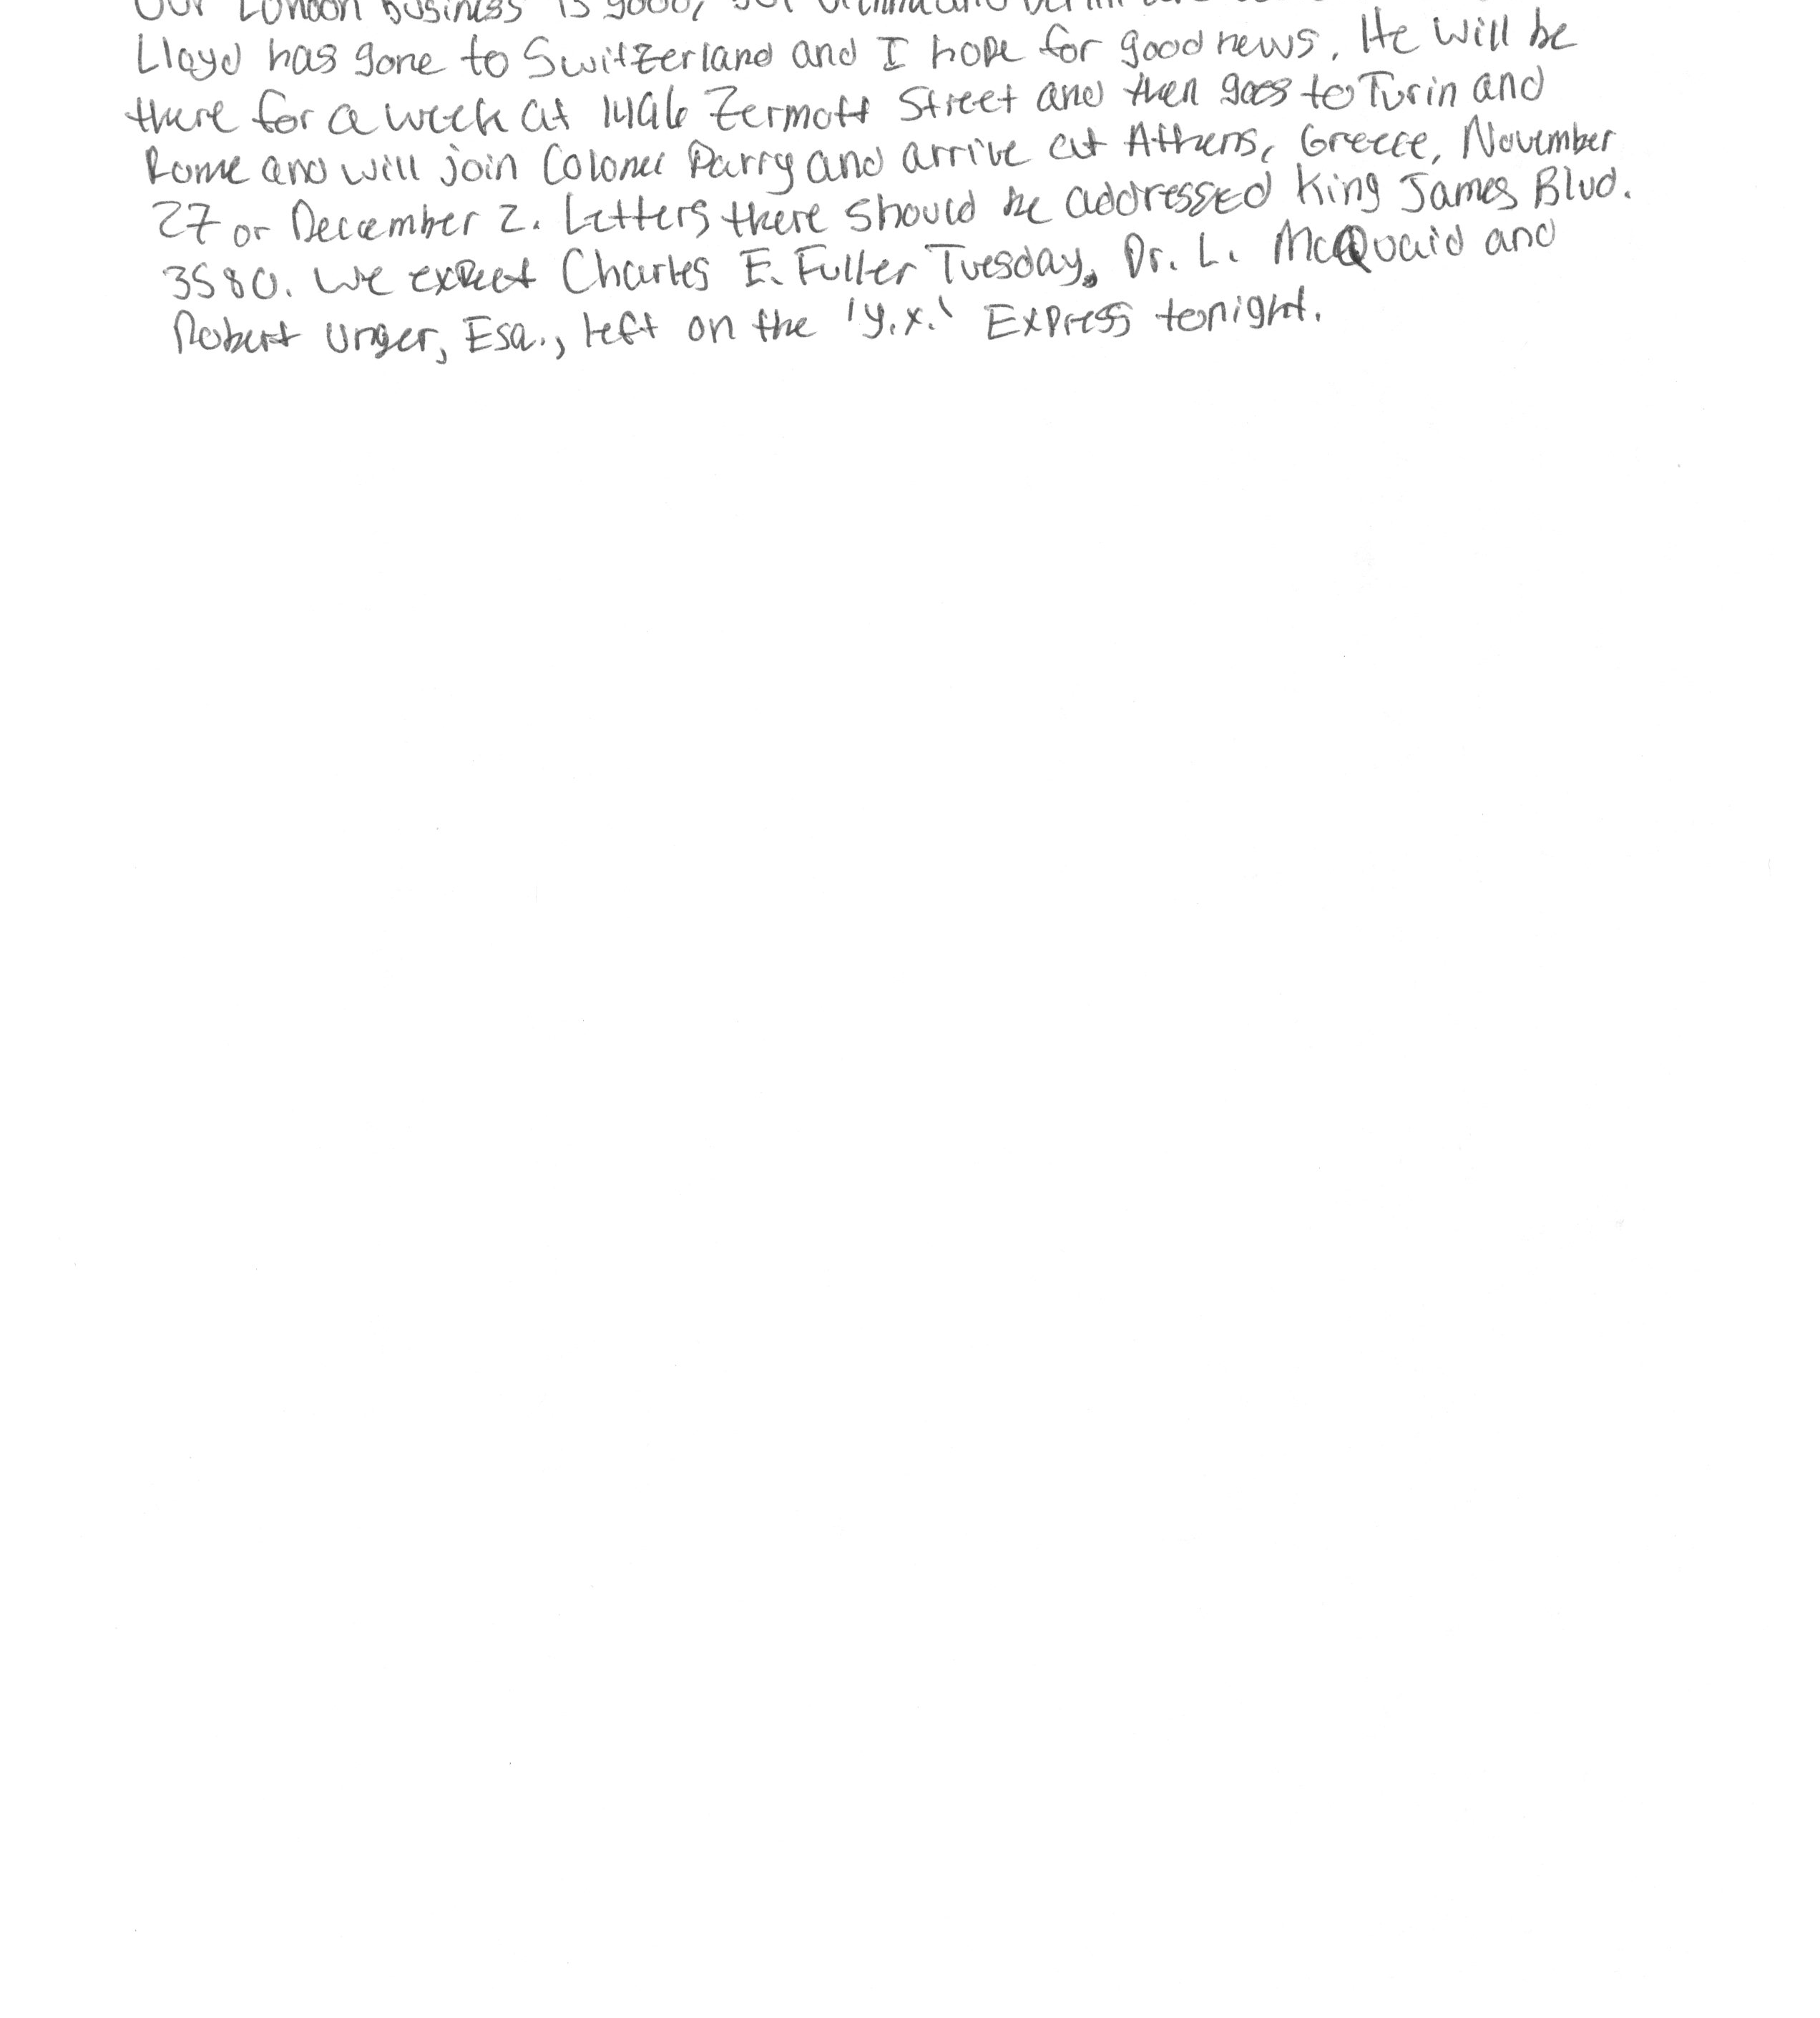 Our London business is good, but Vienna and Berlin are
Lloyd has gone to Switzerland and I hope for good news. He will be
there for a week at 1496 Zermott Street and then goes to Turin and
Rome and will join Colonel Parry and arrive at Athens, Greece, November
27 or December 2. Letters there should be addressed King James Blvd.
3580. We expect Charles E. Fuller Tuesday. Dr. L. McQuaid and
Robert Unger, Esq., left on the 'Y.X.' Express tonight.